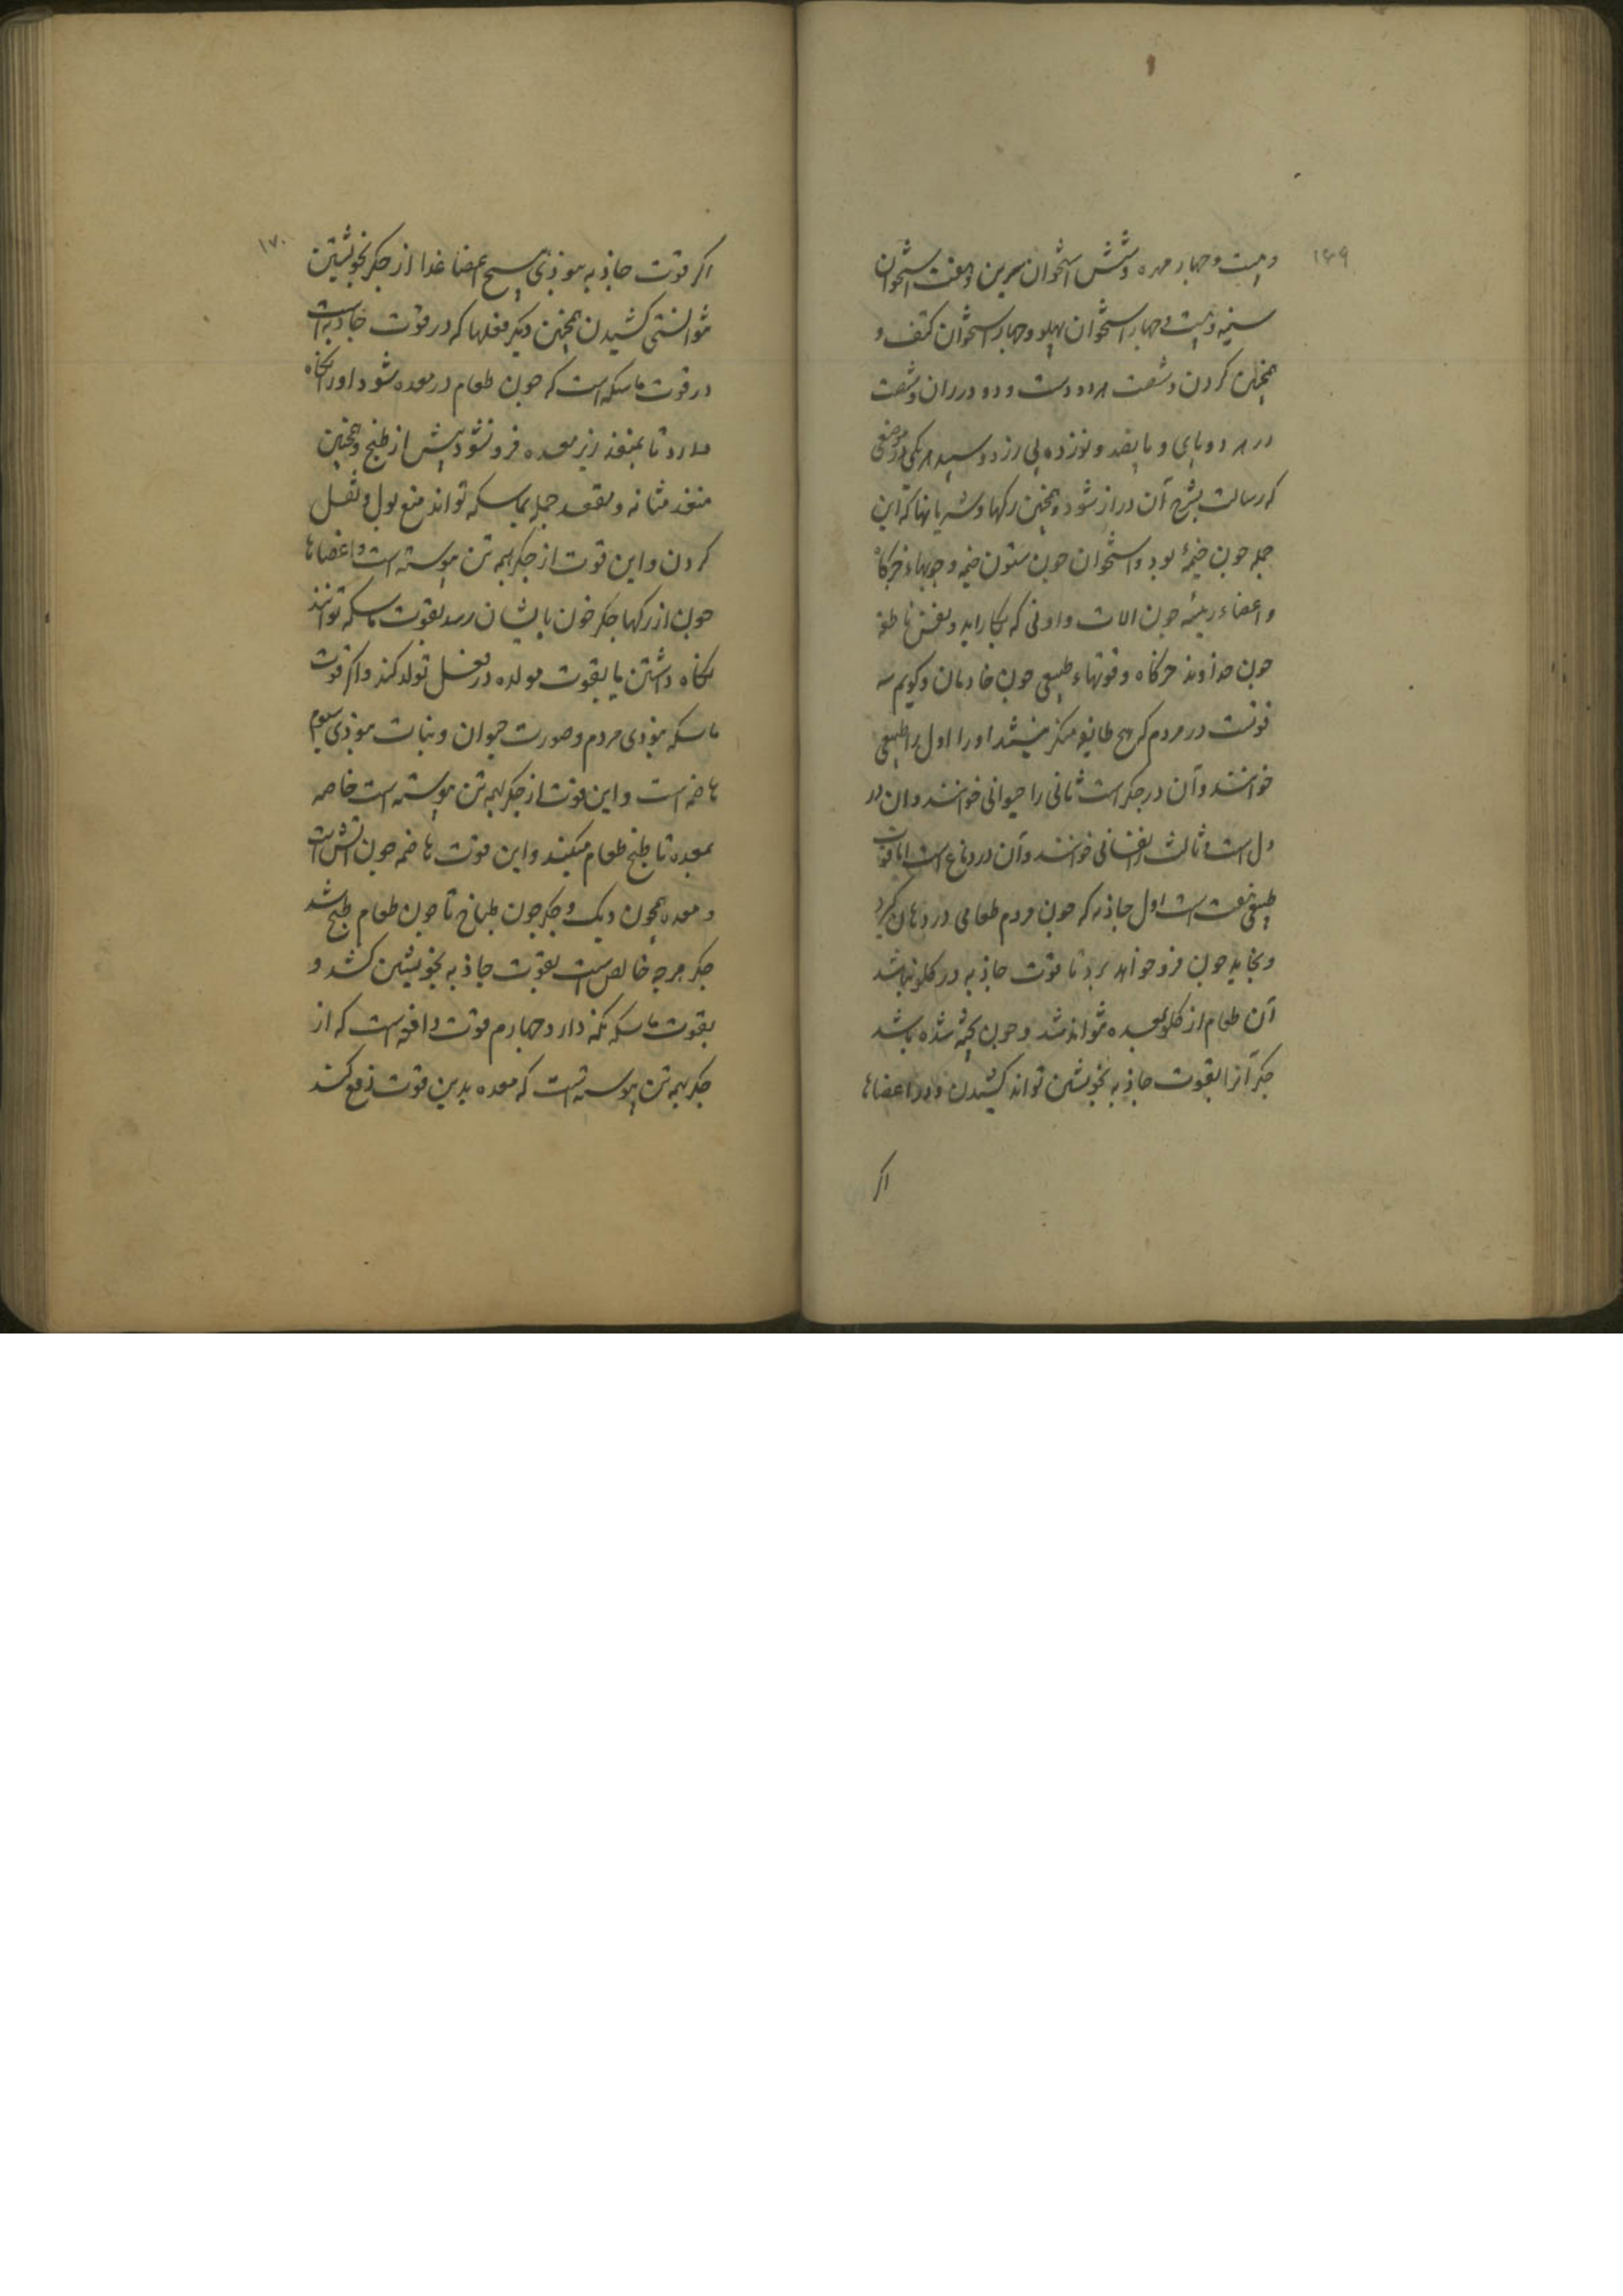 ۱۶۹
و بیست و چهار مهره و شش استخوان سرین و هفت استخوان
سینه و بیست و چهار استخوان پهلو و چهار استخوان کتف و
همچنین کردن و شصت در دو دست و دو در ران و شصت
در هر دو پای و پانصد و نوزده پی
که رسالت بشرح آن دراز شود و همچنین رکها و شریانها که این
جمله چون خیمهٔ بود و استخوان چون ستون خیمه و چوبهاء خرکاه
و اعضاء رئیسه چون الات و اونی که بکار اید و نفس ناطقه
چون خداوند خرکاه و قوتهاء طبیعی چون خادمان و کویم سه
قوتست در مردم که هیچ طایفه منکر نیشند اورا اول را طبیعی
خوانند و آن در جکر است ثانی را حیوانی خوانند و ان در
دل است و ثالث را نفسانی خوانند و آن در دماغ است اما قوت
طبیعی هفت است اول جاذبه که چون مردم طعامی در دهان کیرد
و بخاید چون فرو خواهد برد تا قوت جاذبه در کلو نباشد
آن طعام از کلو بمعده نتواند شد و چون پخته شده باشد
جکر آنرا بقوت جاذبه بخویشتن تواند کشیدن و در اعضاها
اکر
۱۷۰
اکر قوت جاذبه نبوذی هیچ اعضا غذا از جکر بخویشتن
نتوانستی کشیدن همچنین دیکر فعلها که در قوت جاذبه است
در قوت ماسکه است که چون طعام در معده شود اورا نکاه
دارد تا بمنفذ زیر معده فرو نشود پیش از طبخ و همچنین
منفذ مثانه و مقعد جمله بماسکه تواند منع بول و ثفل
کردن و این قوت از جکر بهمه تن پیوسته است و اعضاها
چون از رکها جکر خون بایشان رسد بقوت ماسکه توانند
نکاه داشتن یا بقوت مولده در تولد کند و اکر قوت
ماسکه نبوذی مردم و صورت حیوان و نبات نبوذی سیوم
هاضمه است و این قوت از جکر بهمه تن پیوسته است خاصه
بمعده تا طبخ طعام میکند و این قوت هاضمه چون آتش است
و معده همچون دیک و جکر چون طباخ تا چون طعام طبخ شد
جکر هرچه خالص است بقوت جاذبه بخویشتن کشد و
بقوت ماسکه نکه دارد چهارم قوت دافعه است که از
جکر بهمه تن پیوسته است که معده بدین قوت دفع کند